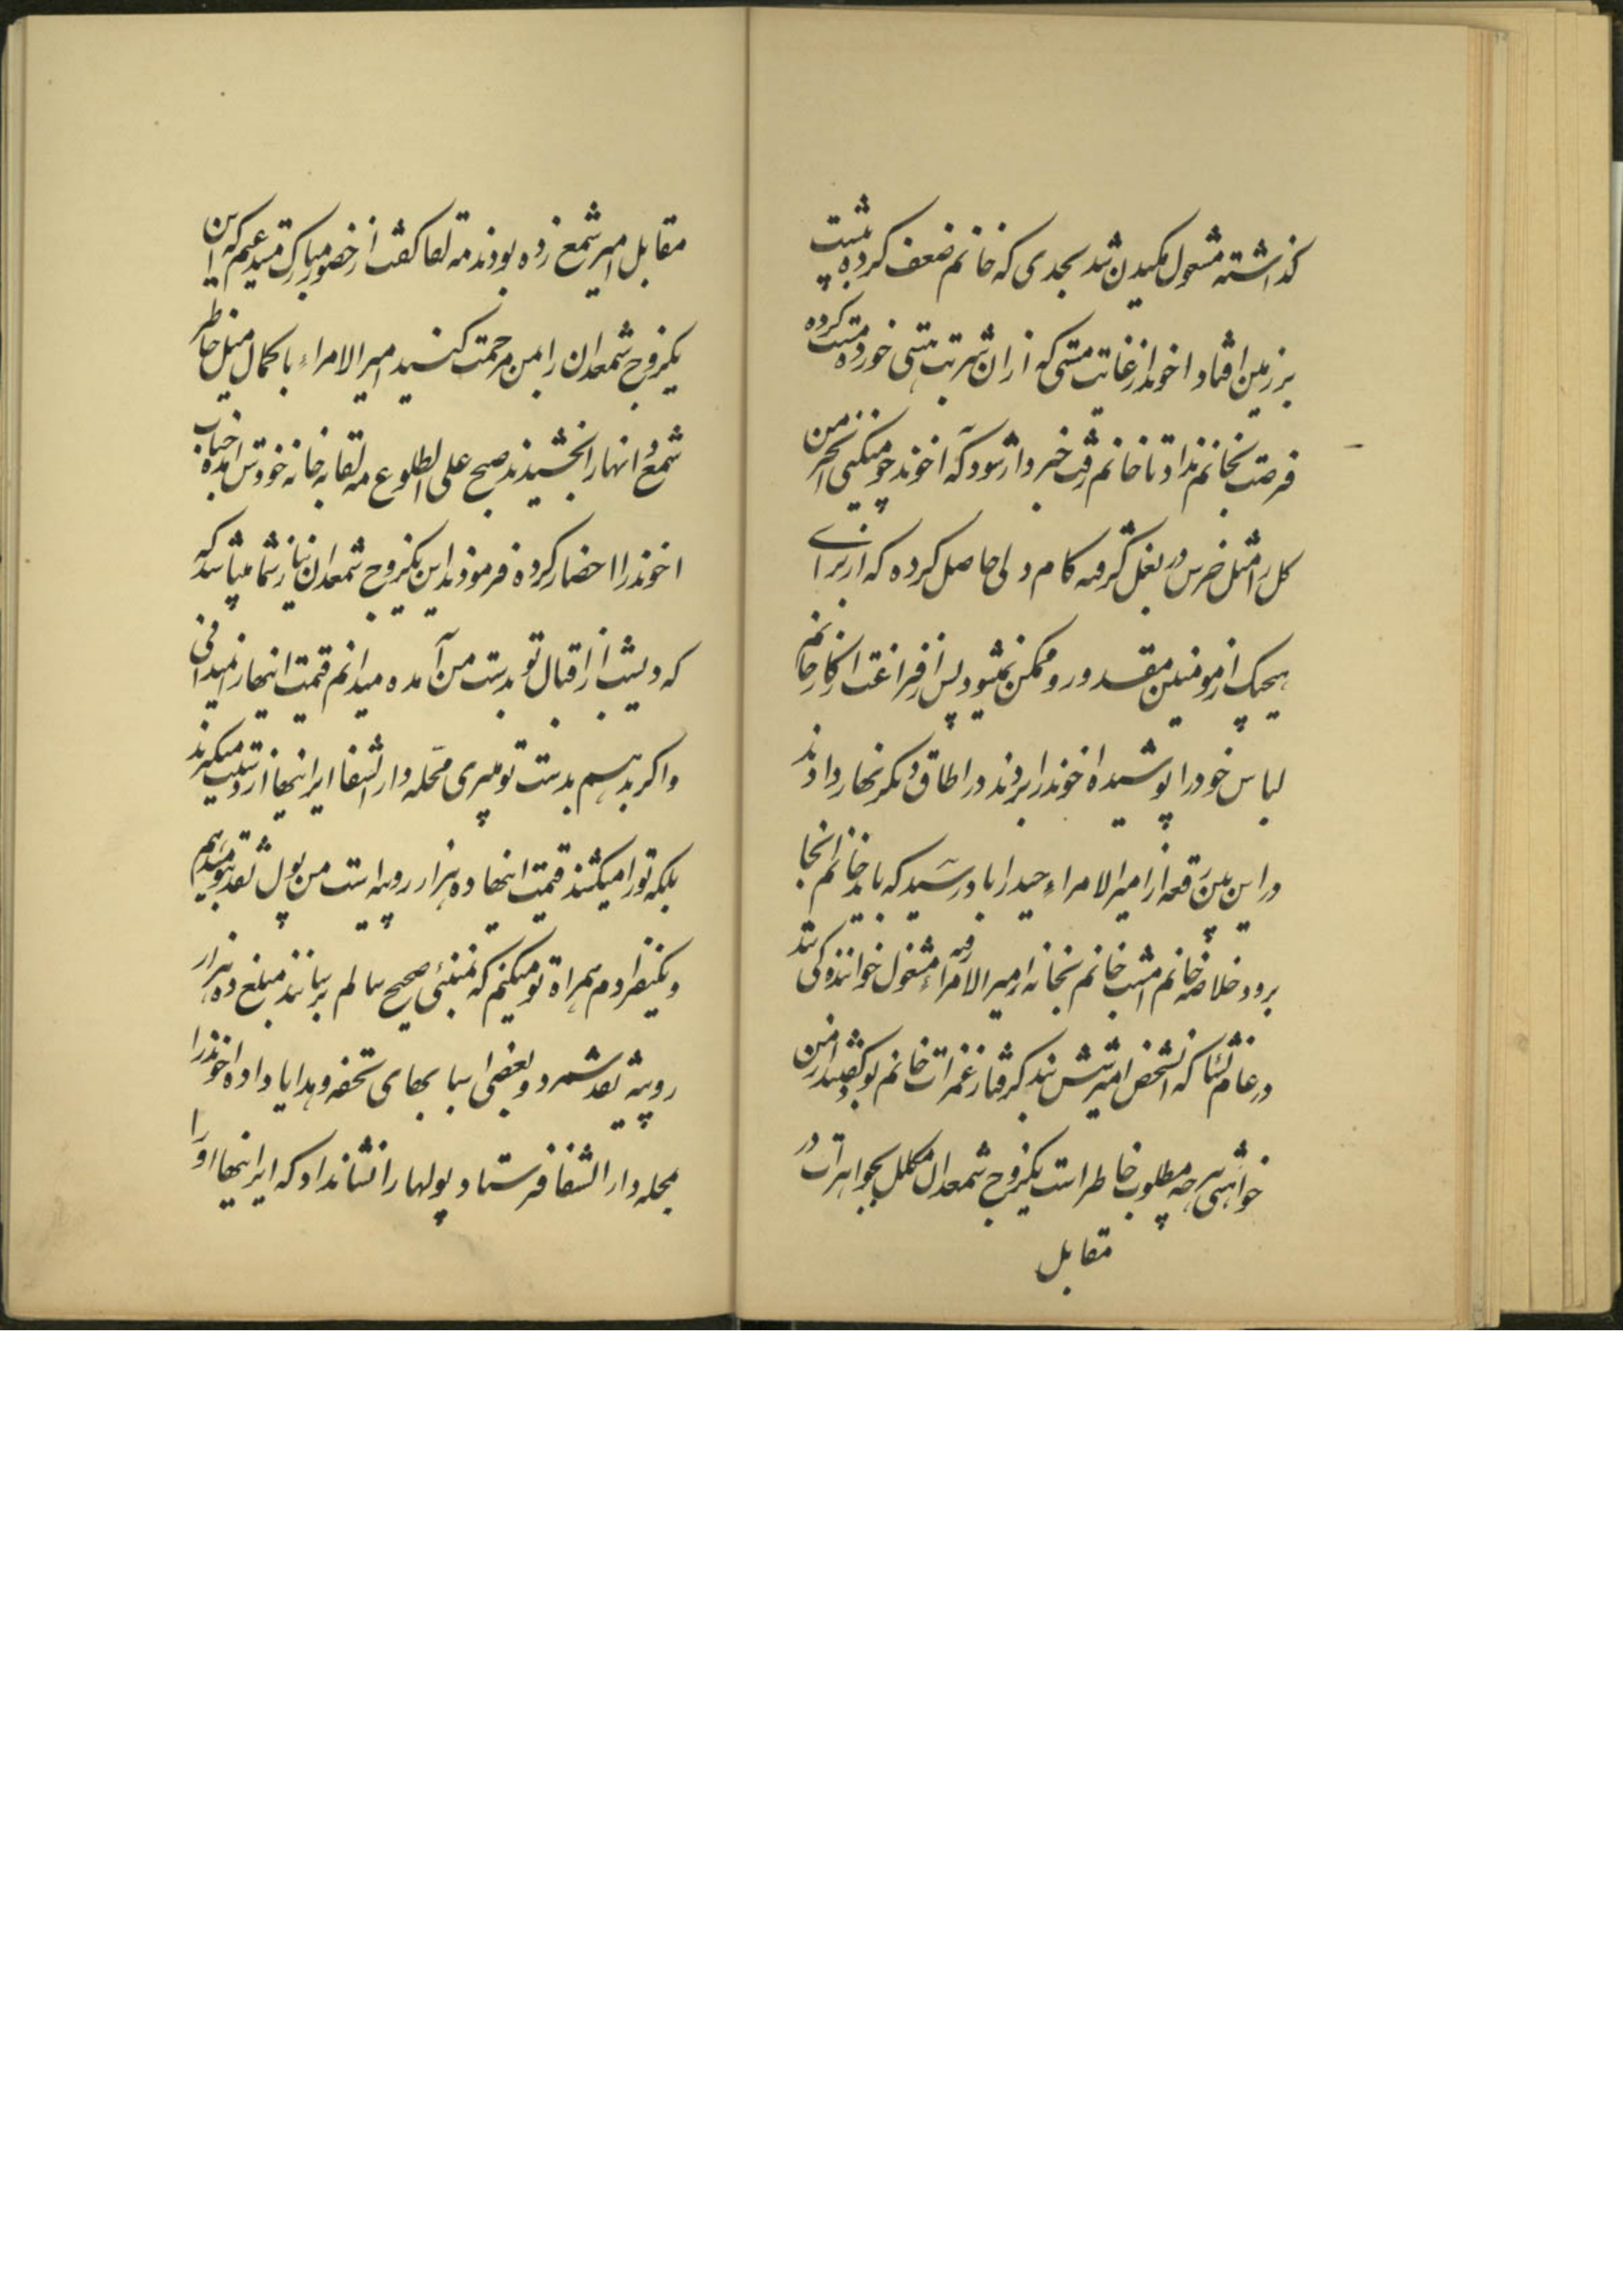 گذاشته مشغول مکیدن شد بحدی که خانم ضعف کرده به پشت
بر زمین افتاد اخوند از غایت مستی که از ان شربت بهشتی خورده مست کرده
فرصت بخانم نداد تا خانم رفت خبردار شود که اخوند چه میکنی اخر من
کل را مثل خرس در بغل گرفته کام دلی حاصل کرده که از برای
هیچیک از مومنین مقدور و ممکن نمیشود پس از فراغت از کار خانم
لباس خود را پوشیده اخوند را بردند در اطاق دیگر نهار دادند
در این بین رقعه از امیر الامراء حیدراباد رسید که باید خانم انجا
برود خلاصه خانم امشب خانم بخانه امیر الامراء رفته مشغول خوانندگی شد
در عالم نشئا که انشخص امیر مست شد گرفتار غمزات خانم بود گفتند از من
خواهشی هر چه مطلوب خاطر است یکزوج شمعدان مکلل بجواهرات در
مقابل
مقابل امیر شمع زده بودند مه لقا گفت از حضور مبارک مستدعیم که این
یکزوج شمعدان را بمن مرحمت کنید امیر الامراء با کمال میل خاطر
شمع انها را بخشیدند صبح علی الطلوع مه لقا به خانه خودش امده جناب
اخوند را احضار کرده فرمودند این یکزوج شمعدان نیاز شما میباشد که
که دیشب از اقبال تو بدست من آمده میدانم قیمت اینها را نمیدانی
و اگر بدهم بدست تو میبری محله دار الشفا ایرانیها از دستت میگیرند
بلکه تو را میکشند قیمت اینها ده هزار روپیه است من پول نقد بتو میدهم
و یکنفر ادم همراه تو میکنم که تمبئی صحیح سالم برسانند مبلغ ده هزار
روپیه نقد شمرد و بعضی اسبابهای تحفه و هدایا داده اخوند را
بمحله دار الشفا فرستاد و پولها را نشانداد که ایرانیها او را